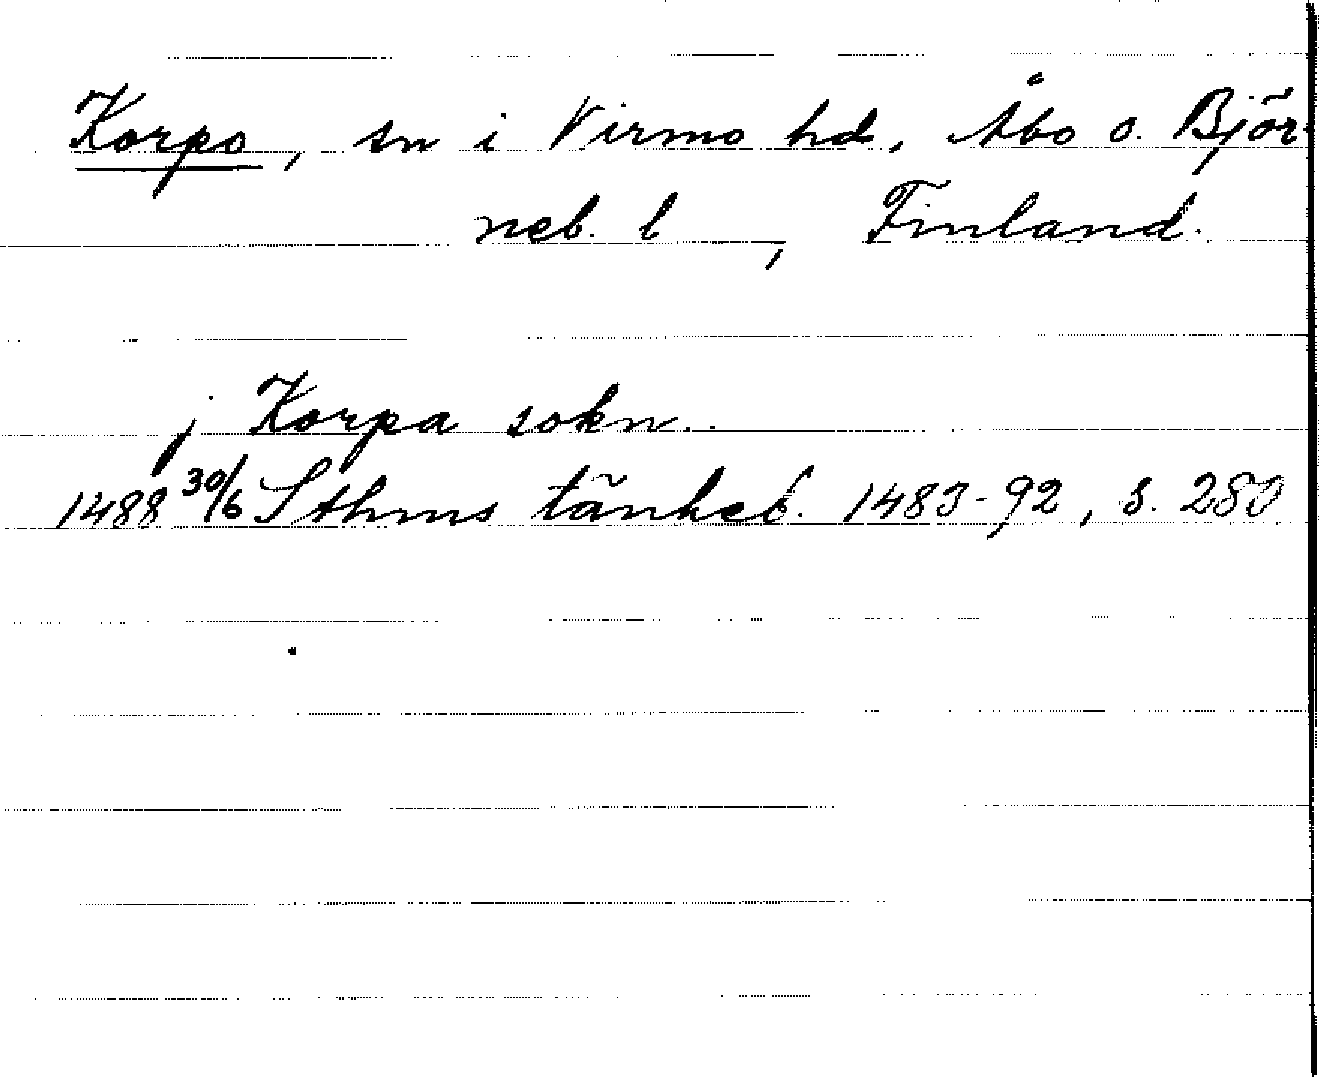 Korpo, sn i Virmo hd, Åbo o. Björ-
neb. l , Finland.
j Korpa sokn..
1488 30/6 Sthms tänkeb. 1483-92, s. 280